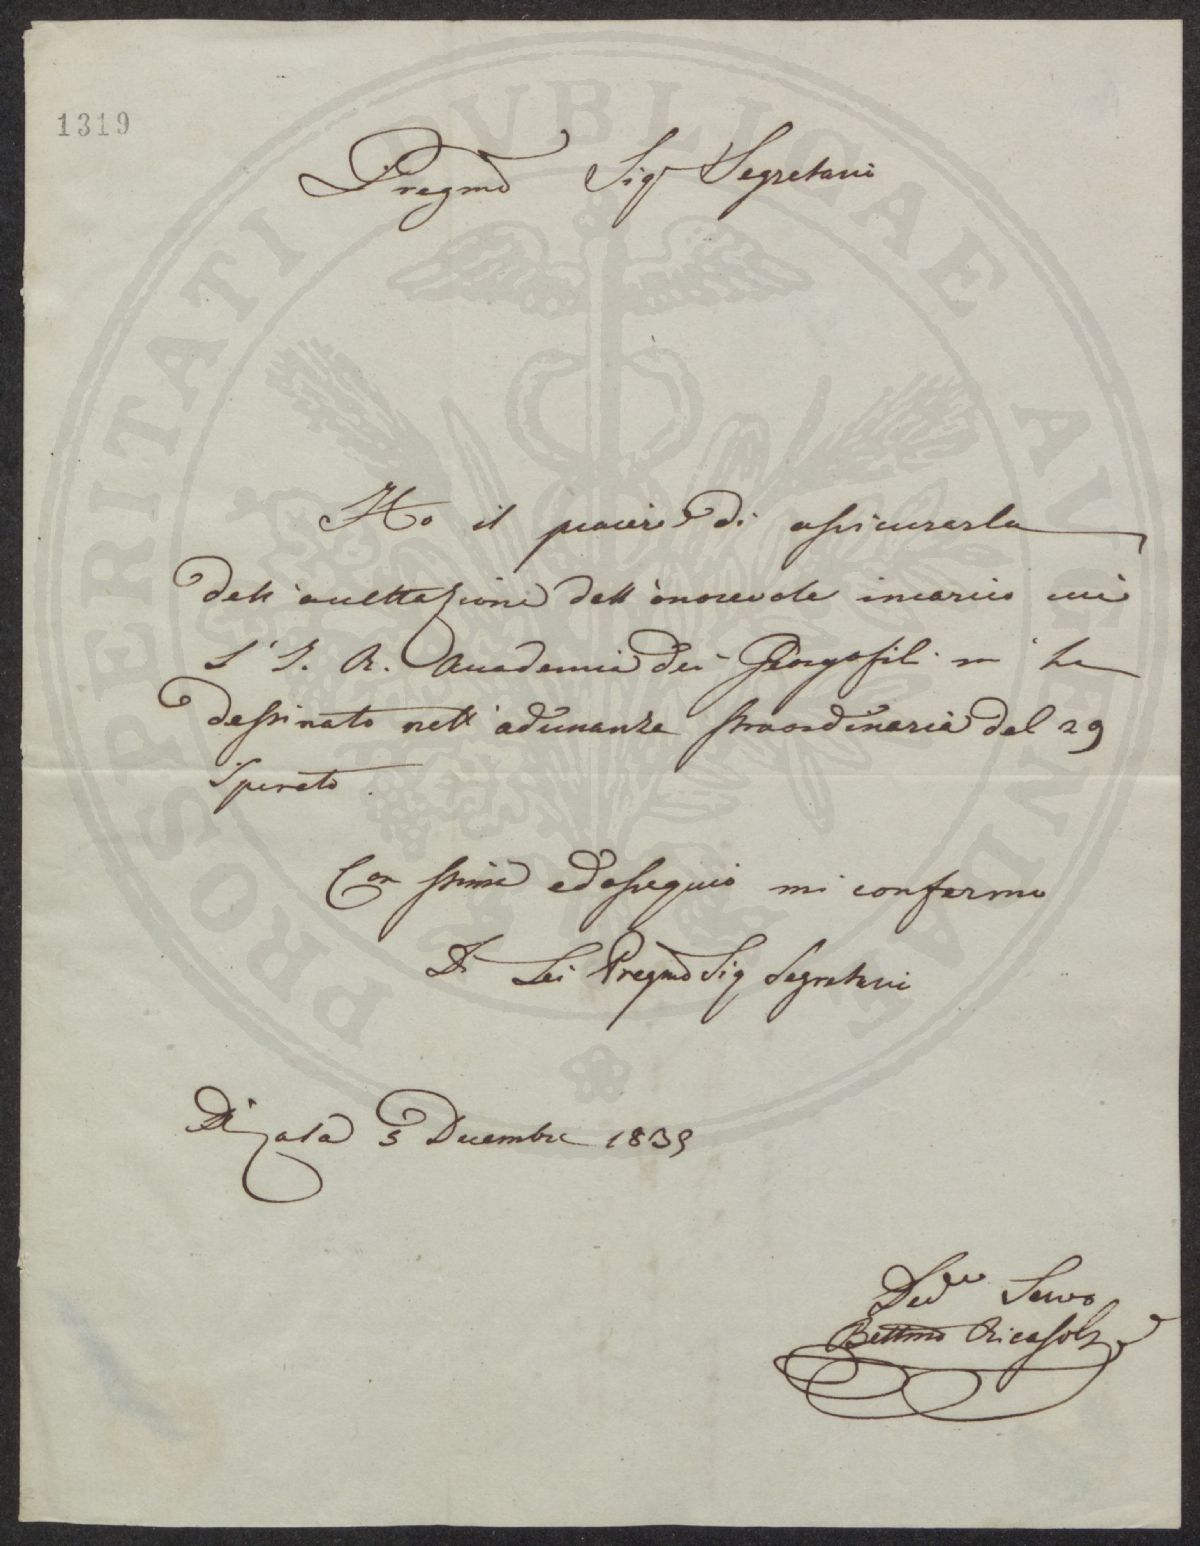 1319
PROSPERITATI PVBLICAE AVGENDAE
Pregmo Sigr Segretario
Ho il piacere di assicurarla
dell'accettazione dell'onorevole incarico cui
l'I. R. Accademia dei Georgofili m'ha
destinato nell'adunanza straordinaria del 29
Spirato.
Con stima ed ossequio mi confermo
Di Lei Pregmo Sig Segretario
Di Casa 5 Decembre 1839
Devmo Servo
Bettino Ricasoli